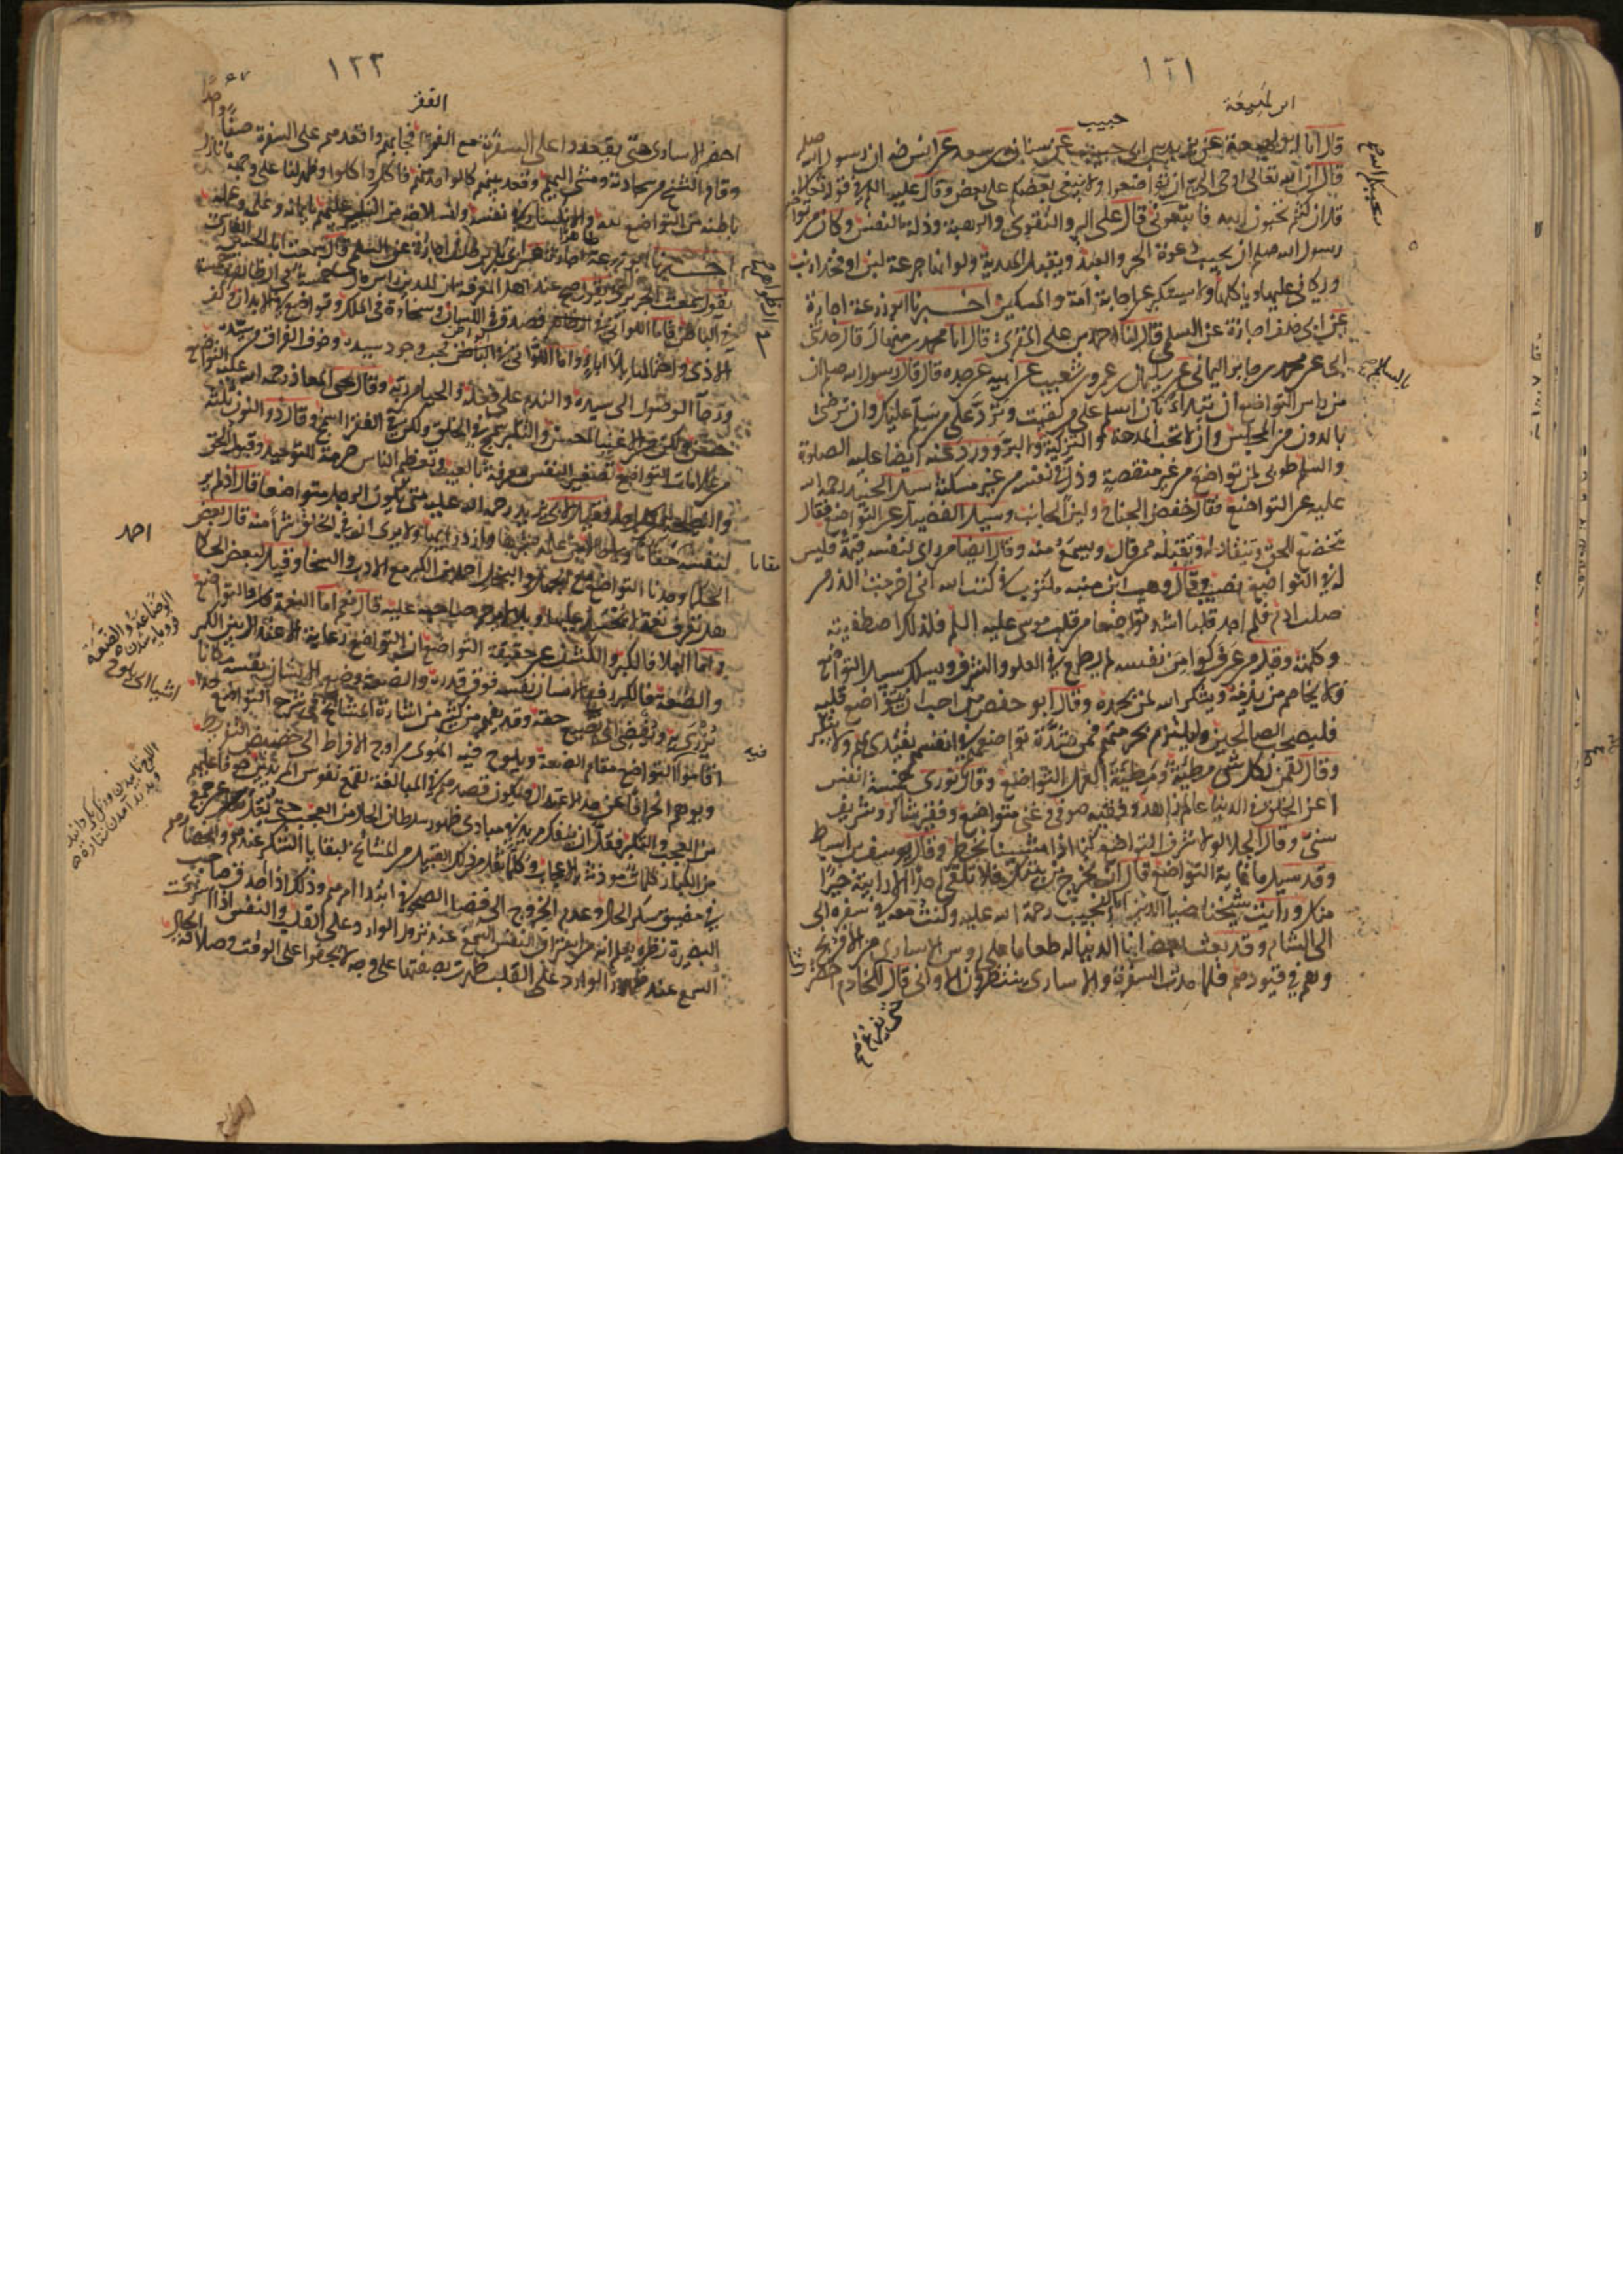 ١٢١
ابن لهيعة
حبيب
قال انا ابن لهيعة عن يزيد بن ابى حبيب عن سنان بن سعد عن انس رضه ان رسول الله صلم
قال ان الله تعالى اوحى الى ان تواضعوا ولا يبغى بعضكم على بعض وقال عليه السلم فى قوله تعالى
قل ان كنتم تحبون الله فاتبعونى قال على البر والتقوى والرهبة وذلة النفس وكان من تواضع
رسول الله صلم ان يجيب دعوة الحر والعبد ويقبل الهدية ولو انها جرعة لبن او فخذ ارنب
ويكافى عليها وياكلها ولا يستكبر عن اجابة امة والمسكين اخبرنا ابو زرعة اجازة
عن ابن خلف اجازة عن السلمى قال انا احمد بن على المقرى قال انا محمد بن منهال قال حدثنى
ابى عن محمد بن جابر اليمانى عن سليمان بن عمرو بن شعيب عن ابيه عن جده قال قال رسول الله صلم ان
من راس التواضع ان تبدأ بالسلم على من لقيت وترد على من سلم عليك وان ترضى
بالدون من المجلس وان لا تحب المدحة والتزكية والبر وورد عنه ايضا عليه الصلوة
والسلم طوبى لمن تواضع من غير منقصة وذل فى نفسه من غير مسكنة سيل الجنيد رحمة الله
عليه عن التواضع فقال خفض الجناح ولين الجانب وسيل الفضيل عن التواضع فقال
تخضع للحق وتنقاد له وتقبله ممن قال وتسمع منه وقال ايضا من راى لنفسه قيمة فليس
له فى التواضع نصيب وقال وهب ابن منبه مكتوب فى كتب الله انى اخرجت الذر من
صلب ادم فلم اجد قلبا اشد تواضعا من قلب موسى عليه السلم فلذلك اصطفيته
وكلمته وقيل من عرف كوامن نفسه لم يطمع فى العلو والشرف ويسلك سبيل التواضع
فلا يخاصم من يذمه ويشكر الله لمن يحمده وقال ابو حفص من احب ان يتواضع قلبه
فليصحب الصالحين وليلتزم بحرمتهم فمن شدة تواضعهم فى انفسهم يقتدى بهم ولا يتكبر
وقال لقمن لكل شى مطية ومطية العمل التواضع وقال النورى خمسة انفس
اعز الخلق فى الدنيا عالم زاهد وفقيه صوفى وغنى متواضع وفقير شاكر وشريف
سنى وقال الجلا لولا شرف التواضع كنا اذا مشينا نخطر وقال يوسف بن اسباط
وقد سيل ما غاية التواضع قال ان تخرج من بيتك فلا تلقى احدا الا رايته خيرا
منك ورأيت شيخنا ضيا الدين ابا النجيب رحمة الله عليه وكنت معه فى سفره الى
الى الشام وقد بعث بعض ابنا الدنيا له طعاما على روس الاسارى من الافرنج
وهم فى قيودهم فلما مدت السفرة والاسارى ينتظرون الاوانى قال للخادم احضر
١٢٢
الفقر
احضر الاسارى حتى يقعدوا على السفرة مع الفقرا فجابهم واقعدهم على السفرة صفا واحدا
وقام الشيخ من سجادته ومشى اليهم وقعد بينهم كالواحد منهم فاكل واكلوا وظهر لنا على وجهه ما نازل
باطنه من التواضع لله والانكسار فى نفسه وانسلاخه من التكبر عليهم بايمانه وعلمه وعمله
اخبرنا ابو زرعة اجازة عن ابى بكر بن خلف اجازة عن السلمى قال سمعت ابا الحسين الفارسى
يقول سمعت الجريرى يقول صح عند اهل المعرفة ان للدين راس مال خمسة فى الظاهر وخمسة
فى الباطن فاما اللواتى فى الظاهر فصدق فى اللسان وسخاوة فى الملك وتواضع فى الابدان وكف
الاذى واحتماله بلا اباء واما اللواتى فى الباطن فحب وجود سيده وخوف الفراق من سيده
ورجا الوصول الى سيده والندم على فعله والحيا من ربه وقال يحيى بن معاذ رحمة الله عليه التواضع
فى الخلق حسن ولكن فى الاغنيا احسن والتكبر سمج فى الخلق ولكن فى الفقرا اسمج وقال ذو النون ثلثة
من علامات التواضع تصغير النفس معرفة بالعيب وتعظيم الناس حرمة للتوحيد وقبول الحق
والنصيحة من كل واحد وقيل لابى يزيد رحمة الله عليه متى يكون الرجل متواضعا قال اذا لم ير
لنفسه مقاما ولا حالا من علمه بشرها وازدرائها ولا يرى ان فى الخلق شرا منه قال بعض
الحكما وجدنا التواضع مع الجهل والبخل احمد من الكبر مع الادب والسخا وقيل لبعض الحكما
هل تعرف نعمة لا يحسد عليها وبلا لا يرحم صاحبه عليه قال نعم اما النعمة فالتواضع
واما البلا فالكبر والكشف عن حقيقة التواضع ان التواضع رعاية الاعتدال بين الكبر
والضعة فالكبر رفع الانسان نفسه فوق قدره والضعة وضع الانسان نفسه مكانا
يزرى به ويفضى الى تضييع حقه وقد يفهم من كثير من اشارة المشائخ فى شرح التواضع
اقاموا التواضع مقام الضعة ويلوح فيه الهوى من اوج الافراط الى حضيض التفريط
ويوهم انحرافا عن حد الاعتدال ويكون قصدهم فى المبالغة لقمع نفوس المريدين خوفا عليهم
من العجب والتكبر فقل ان ينفك مريد فى مبادى ظهور سلطان الحال من العجب حتى نقل عن جمع
من الكبار كلمات موذنة بالاعجاب وكلما نقل من ذلك القبيل من المشائخ لبقايا السكر عندهم وانحصارهم
فى مضيق سكر الحال وعدم الخروج الى فضا الصحو فى ابتدا امرهم وذلك اذا احدق صاحب
البصيرة نظره يعلم انه من استراق النفس السمع عند نزول الوارد على القلب والنفس اذا استرقت
السمع عند ظهور الوارد على القلب ظهرت بصفتها على وجه لا يجفوا على الوقت وصلافة الحال
احمد
مقاما
فيه